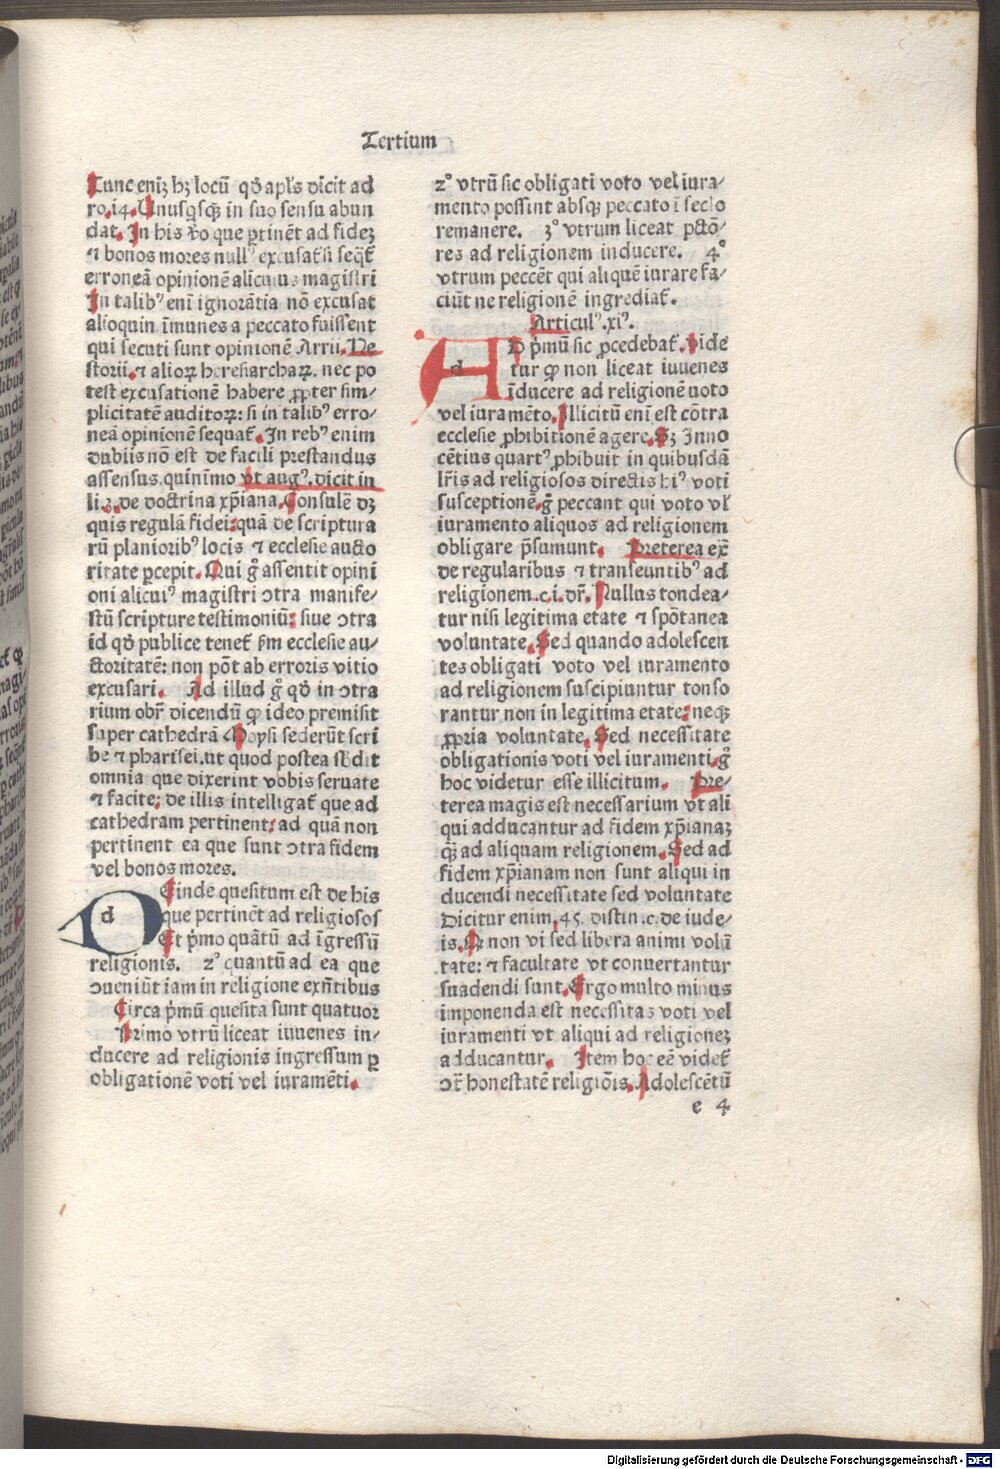 Tertium
Tunc eniʒ hʒ locū qđ apl's dicit ad
ro.i4. Unusqsqʒ in suo sensu abun
dat. In his v̄o que ꝑtinēt ad fideʒ
⁊ bonos mores nullꝰ excusat̄ si seq̄t̄
erroneā opinionē alicuius magistri
In talibꝰ eni ignorātia nō excusat
alioquin īmunes a peccato fuissent
qui secuti sunt opinionē Arrii. Ne
storii. ⁊ alioꝝ heresiarchaꝝ. nec po
test excusationē habere ꝓpter sim/
plicitatē auditoꝝ: si in talibꝰ erro/
neā opinionē sequat̄. In rebꝰ enim
dubiis nō est de facili prestandus
assensus. quinimo vt augꝰ. dicit in
li.3. de doctrina xp̄iana. Consulē dʒ
quis regulā fidei: quā de scriptura
rū planioribꝰ locis ⁊ ecclesie aucto
ritate ꝑcepit. Qui g̊ assentit opini
oni alicuiꝰ magistri ↄtra manife/
stū scripture testimoniū: siue ↄtra
id qđ publice tenet̄ ẜm ecclesie au/
ctoritatē: non pōt ab erroris vitio
excusari. Ad illud g̊ qđ in ↄtra
rium obr̄ dicendū ꝙ ideo premisit
super cathedrā Moysi sederūt scri
be ⁊ pharisei. ut quod postea sb̄dit
omnia que dixerint vobis seruate
⁊ facite: de illis intelligat̄ que ad
cathedram pertinent: ad quā non
pertinent ea que sunt ↄtra fidem
vel bonos mores.
d Einde quesitum est de his
que pertinēt ad religiosos
Et p̍mo quātū ad īgressū
religionis. 2ꝰ quantū ad ea que
ↄueniūt iam in religione exn̄tibus
Circa p̍mū quesita sunt quatuor
Primo vtrū liceat iuuenes in/
ducere ad religionis ingressum ꝑ
obligationē voti vel iuramēti.
2ꝰ vtrū sic obligati voto vel iura/
mento possint absqʒ peccato ī seclo
remanere. 3ꝰ vtrum liceat pctō/
res ad religionem inducere. 4ꝰ
vtrum peccēt qui aliquē iurare fa/
ciūt ne religionē ingrediat̄.
Articulꝰ.xiꝰ.
d AD p̍mū sic ꝓcedebat̄. Vide
tur ꝙ non liceat iuuenes
īducere ad religionē uoto
vel iuramēto. Illicitū eni est cōtra
ecclesie ꝓhibitionē agere. Sʒ Inno
cētius quartꝰ ꝓhibuit in quibusdā
lr̄is ad religiosos directis hiꝰ voti
susceptionē. g̊ peccant qui voto vl̄
iuramento aliquos ad religionem
obligare p̄sumunt. Preterea ex̄
de regularibus ⁊ transeuntibꝰ ad
religionem.c.i.dr̄. Nullus tondea/
tur nisi legitima etate ⁊ spōtanea
voluntate. Sed quando adolescen
tes obligati voto vel iuramento
ad religionem suscipiuntur tonso
rantur non in legitima etate: neqʒ
ꝓpria voluntate. Sed necessitate
obligationis voti vel iuramenti. g̊
hoc videtur esse illicitum. Pre/
terea magis est necessarium vt ali
qui adducantur ad fidem xp̄ianaʒ
qʒ ad aliquam religionem. Sed ad
fidem xp̄ianam non sunt aliqui in
ducendi necessitate sed voluntate
Dicitur enim.45. distin.c. de iude/
is. Q non vi sed libera animi volū
tate: ⁊ facultate vt conuertantur
suadendi sunt. Ergo multo minus
imponenda est necessitas voti vel
iuramenti vt aliqui ad religioneʒ
adducantur. Item hoc eē videt̄
ↄr̄ honestatē religiōis. Adolescētū
e 4
Digitalisierung gefördert durch die Deutsche Forschungsgemeinschaft - DFG